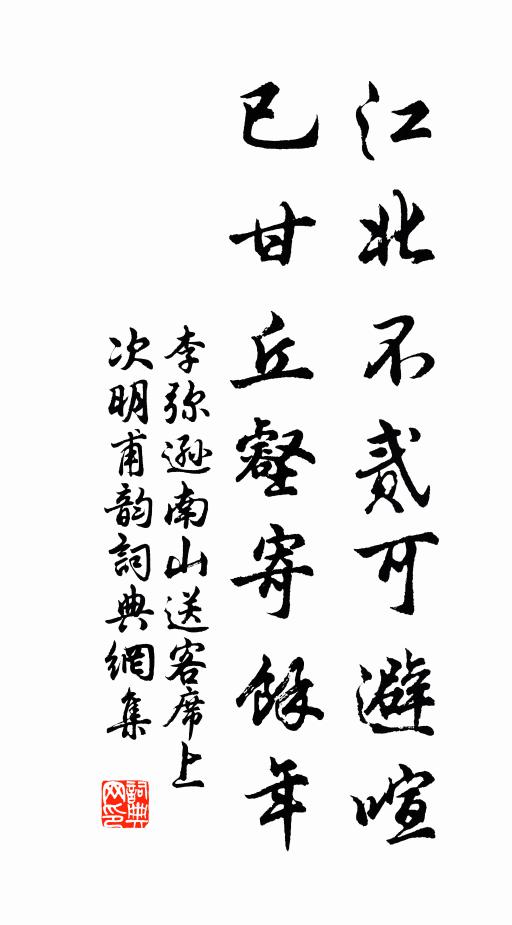 江北不貳可避喧
已甘丘壑寄餘年
李弥遜南山送客席上
次明甫韵詞典網集
詞典网印